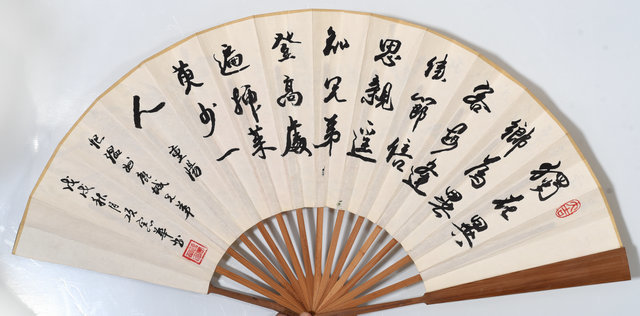 獨在異
鄉為異
客每逢
佳節倍
思親遙
知兄弟
登高處
遍插茱
萸少一
人
重陽
憶溫州鹿城兄弟
戊戌秋月書